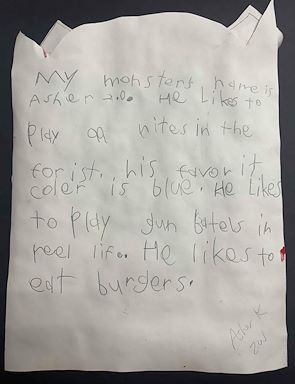 My monsters name is
Asher 2.0. He Likes to
Play on nites in the
forist. his favorit
coler is blue. He Likes
to play gun batels in
reel life. He likes to
eat burgers.
Asher K